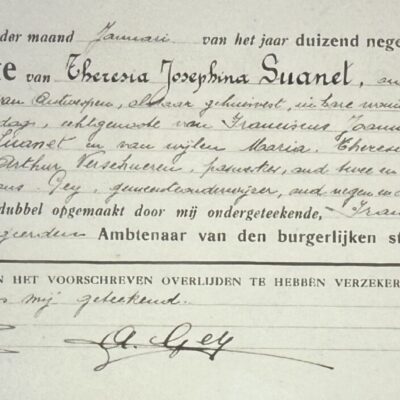 der maand Januari van het jaar duizend nege
e van Theresia Josephina Suanet, 
van Antwerpen, aldaar gehuisvest, in hare woni
dags, echtgenote van Franciscus Joann
Suanet en van wijlen Maria Theres
Arthur Verschueren, paswerker, oud twee en
Gey, gemeenteonderwijzer, oud negen en d
dubbel opgemaakt door mij ondergeteekende, Fran
Ambtenaar van den burgerlijken st
N HET VOORSCHREVEN OVERLIJDEN TE HEBBEN VERZEKER
mij geteekend.
A. Gey